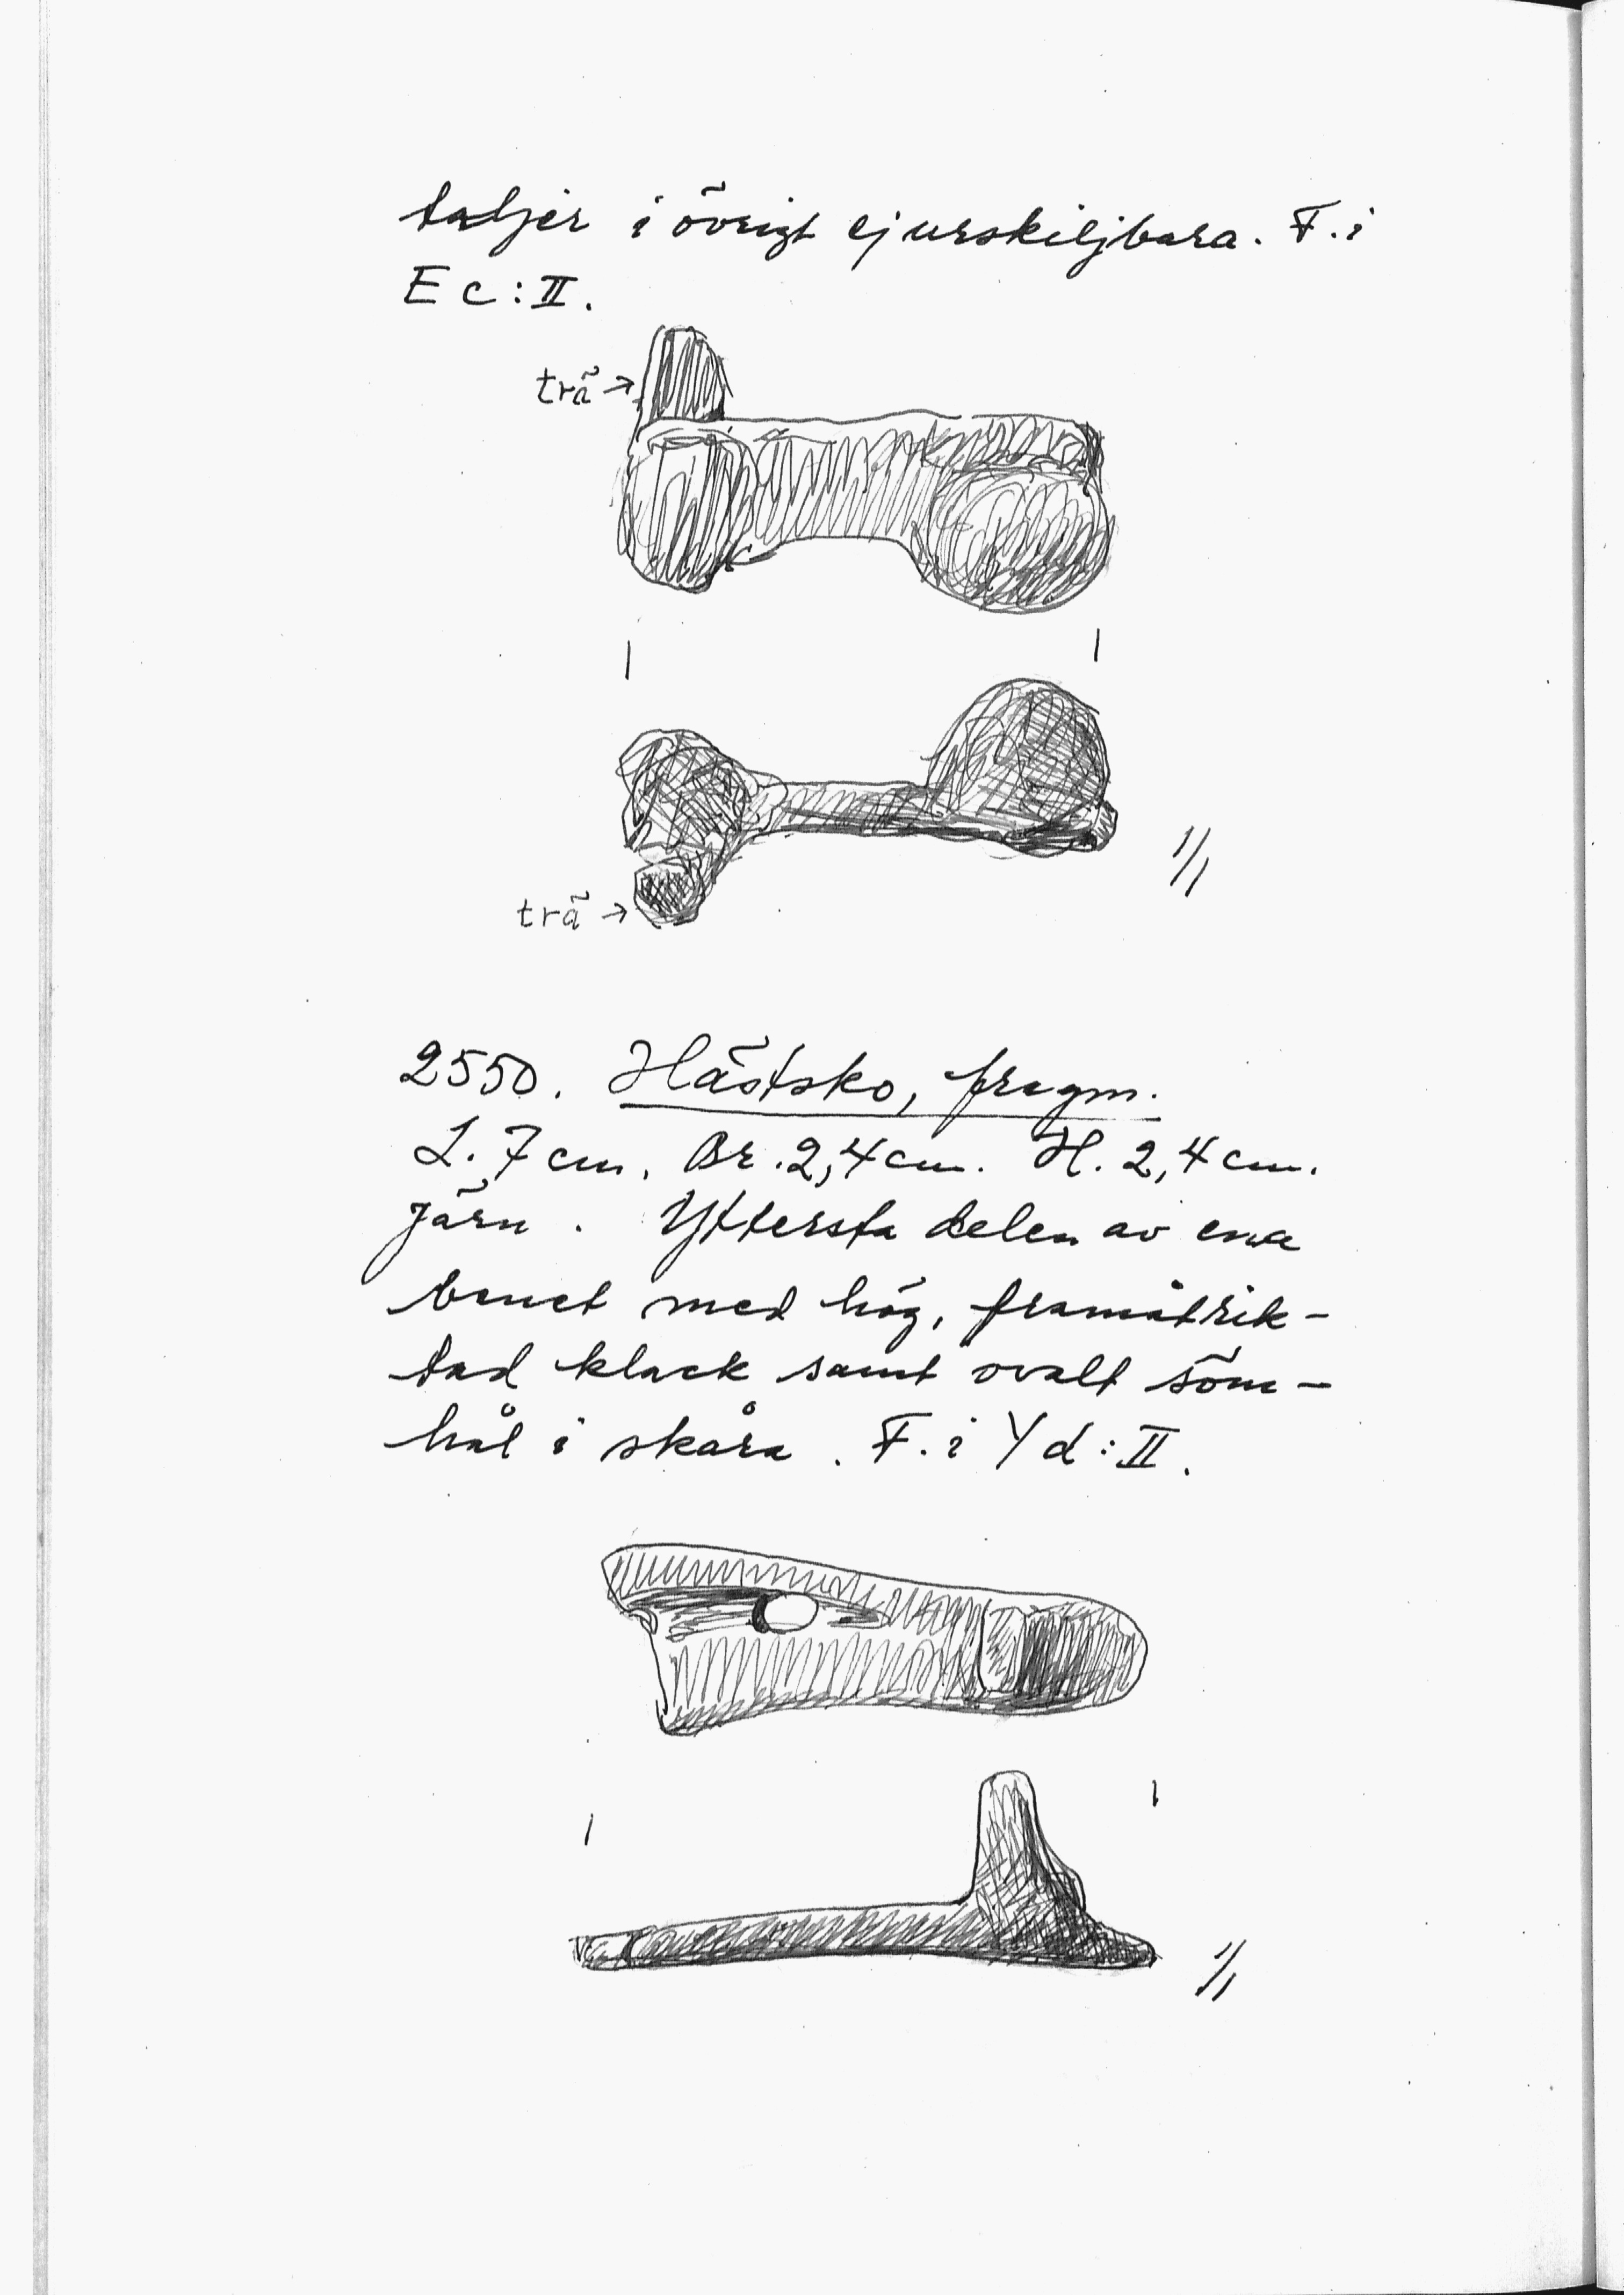 taljer i övrigt ej urskiljbara. F. i
Ec:II.
trä →
1/1
trä →
2550. Hästsko, fragm.
L. 7 cm. Br. 2,4 cm. H. 2,4 cm.
Järn. Yttersta delen av ena
benet med hög, framåtrik-
tad klack samt ovalt söm-
hål i skåra. F. i Yd:II.
1/1